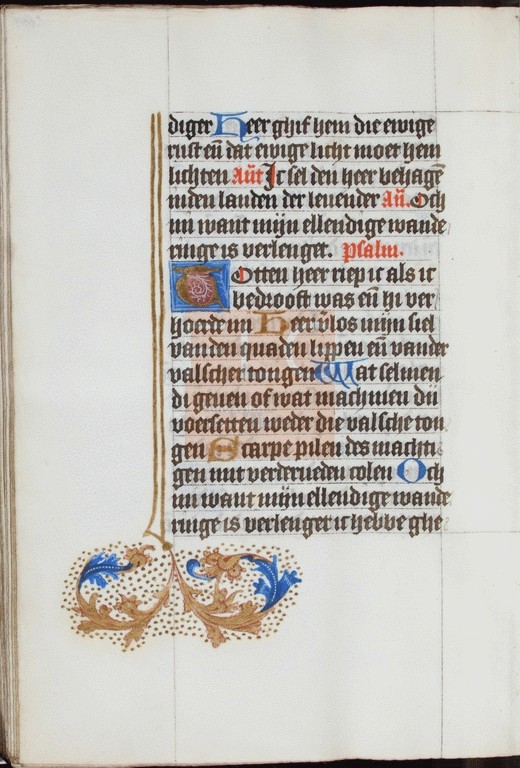 diger Heer ghif hem die ewige
rust en̄ dat ewige licht moet hem
lichten An̄t Ic sel den heer behagē
inden landen der leuender An̄. Och
mi want mijn ellendige wande
ringe is verlenget. psalm.
Totten heer riep ic als ic
bedrooft was en̄ hi ver
hoerde mi Heer v̄los mijn siel
vanden quaden lippen en̄ vander
valscher tongen Wat selmen
di geuen of wat machmen di
voersetten weder die valsche ton
gen Scarpe pilen des machti
gen mit verderueden colen Och
mi want mijn ellendige wande
ringe is verlenget ic hebbe ghe